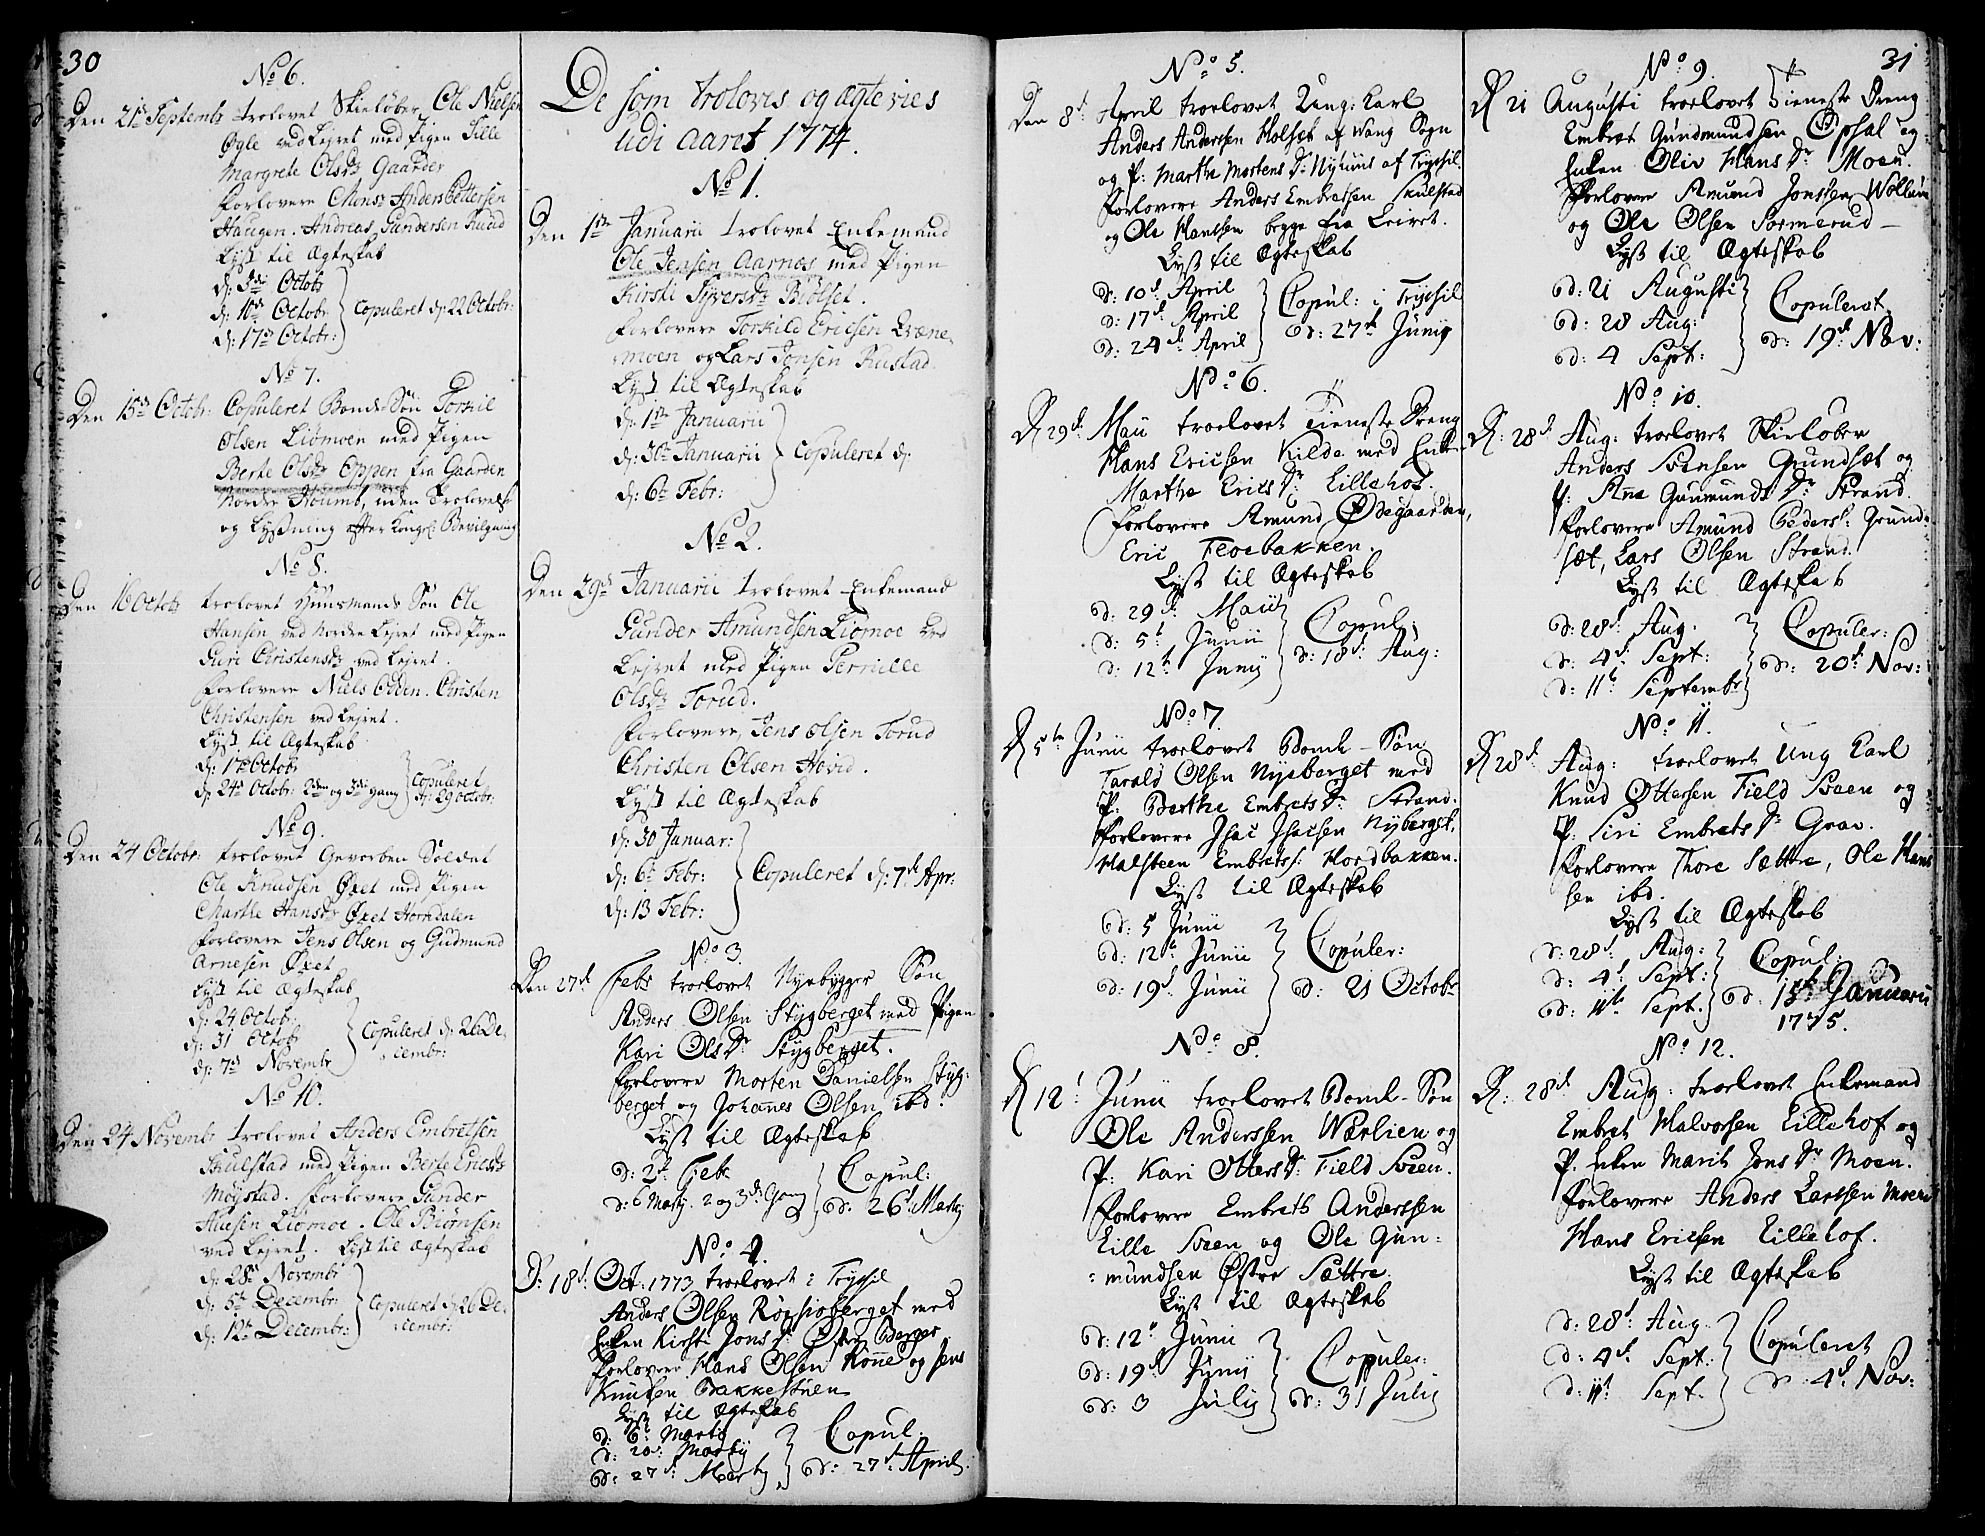 30
No 6.
Den 21de Septembr trolovet Skieløber Ole Nielsen
Øgle ved Lejret med Pigen Sille
Margrete Olsdr Gaarder
Forlovere Mons Anders Pettersen
Haugen. Andreas Gundersen Ruud
Lyst til Ægteskab
d: 3die Octobr
d: 10de Octobr
d: 17de Octobr:
Copuleret d: 22 Octobr:
No 7.
Den 15de Octobr: Copuleret Bonde Søn Torkil
Olsen Liømoen med Pigen
Berte Olsdr Oppen fra Gaarden
Norder Houmb, uden Trolovelse
og Lysning efter Kongel: Bevilgning
No 8.
Den 16 Octobr trolovet Huusmands Søn Ole
Hansen ved Norder Lejret med Pigen
Guri Christensdr ved Lejret.
Forlovere Niels Oden. Christen
Christensen ved Lejret.
Lyst til Ægteskab
d: 17de Octobr
d: 24de Octobr: 2den og 3die gang
Copuleret
d: 29 Octobr:
No 9.
Den 24 Octobr: trolovet Gevorben Soldat
Ole Knudsen Øxet med Pigen
Marthe Hansdr Øxet Horndalen
Forlovere Jens Olsen og Gudmund
Arnesen Øxet
Lyst til Ægteskab
d: 24 Octob:
d: 31 Octobr
d: 7de Novembr
Copuleret d: 26 De-
cembr:
No 10.
Den 24 Novembr trolovet Anders Embretsen
Skulstad med Pigen Berte Ericsdr
Møystad. Forlovere Gunder
Liømoe. Ole Biørnsen
ved Lejret. Lyst til Ægteskab
d: 28de Novembr
d: 5te Decembr:
d: 12te Decembr:
Copuleret d: 26 De-
cembr:
De som troloves og ægtevies
udi aaret 1774.
No 1.
Den 1ste Januarii trolovet Enkemand
Ole Jensen Aarnes med Pigen
Kirsti Syversdr Biølset.
Forlovere Torkild Ericsen Qværne-
moen og Lars Jonsen Skustad
Lyst til Ægteskab
d: 1ste Januarii
d: 30te Januarii
d: 6te Febr:
Copuleret d:
No 2.
Den 29de Januarii trolovet Enkemand
Gunder Amundsen Liømoe ved
Lejret med Pigen Pernille
Olsdr Torud.
Forlovere, Jens Olsen Torud
Christen Olsen Hovid.
Lyst til Ægteskab
d: 30 Januar:
d: 6te Febr:
d: 13 Febr:
Copuleret d: 7de Apr:
No 3.
Den 27d Febr troelovet Nyebygger Søn
Anders Olsen Stygberget med Pigen
Kari Olsdr Stygberget.
Forlovere Morten Danielsen Styg-
berget og Johannes Olsen ibd:
Lyst til Ægteskab
d: 2d Febr
d: 6 Martij. 2 og 3d Gang
Copul:
d: 26d Martij
No 4.
D: 18d Oct: 1773 troelovet i Trysil
Anders Olsen Røgsioberget med
Enken Kirsti Jonsdr Øster Berger
Forlovere Hans Olsen Rønne og Jens
Knudsen Bakkestuen
Lyst til Ægteskab
d: 6te Martij
d: 20d Martij
d: 27d: Martij
Copul:
d: 27d April.
No 5.
Den 8d April troelovet Ung: Karl
Anders Anderssen Holset af Wang Sogn
og P: Marthe Mortens Dr Nyhuus af Trysil.
Forlovere Anders Embretsen Skulstad
og Ole Hanssen begge fra Leiret.
Lyst til Ægteskab
d: 10d April
d: 17d April
d: 24d April
Copul: i Trysil
d: 27d Junij
No 6.
D 29d. Maii troelovet Tieneste Dreng
Hans Ericsen Kilde med Enken
Marthe Erics Dr Lillehof.
Forlovere Amund Ødegaarden,
Eric Floebakken.
Lyst til Ægteskab
d: 29d: Maii
d: 5t Junii
d: 12t Junij
Copul:
d: 18d: Aug:
No 7.
D 5te Junii troelovet Bonde-Søn
Tarald Olsen Nyeberget med
P: Berthe Embrets Dr Strand.
Forlovere Isac Isacsen Nyberget,
Halsteen Embrets: Hordbakken.
Lyst til Ægteskab
d: 5 Junii
d: 12t Junii
d: 19d Junii
Copuler:
d: 21 Octobr
No 8.
D 12t Junii troelovet Bonde-Søn
Ole Anderssen Wærlien og
P: Kari Otters Dr: Field Sveen.
Forlovere Embret Anderssen
Lille Sveen og Ole Gun-
mundsen Østre Sættre.
Lyst til Ægteskab
d: 12t Junii
d: 19d Junij
d: 3 Julij
Copuler:
d: 31 Julij
31
No 9.
D 21 Augusti troelovet Tieneste Dreng
Embret Gundmundsen Opsal og
Enken Oliv Hans Dr Moen.
Forlovere Amund Jonssen Wollum
og Ole Olsen Sormerud
Lyst til Ægteskab
d: 21 Augusti
d: 28 Aug:
d: 4 Sept:
Copuleret
d: 19d Nov:
No 10.
D: 28d Aug: troelovet Skieløber
Anders Svensen Grundsæt og
P: Anne Gunmunds Dr Strand.
Forlovere Amund Peders: Grund-
sæt, Lars Olsen Strand.
Lyst til Ægteskab
d: 28d Aug:
d: 4d Sept:
d: 11t Septembr
Copuler:
d: 20d Nov:
No 11.
D 28d Aug: troelovet Ung Karl
Knud Ottersen Field Sveen og
P: Siri Embrets Dr Grav.
Forlovere Thore Sættre, Ole Hans
sen ibd.
Lyst til Ægteskab
d: 28d Aug:
d: 4d Sept:
d: 11t Sept.
Copul:
d: 15d Januarii
1775.
No 12.
D: 28d Aug: troelovet Enkemand
Embret Halvorsen Lillehof og
P. Enken Marit Jons Dr Moen.
Forlovere Anders Larssen Moen
Hans Ericsen Lillehof.
Lyst til Ægteskab
d: 28d Aug.
d: 4d. Sept:
d: 11t Sept.
Copuleret
d: 4d Nov: